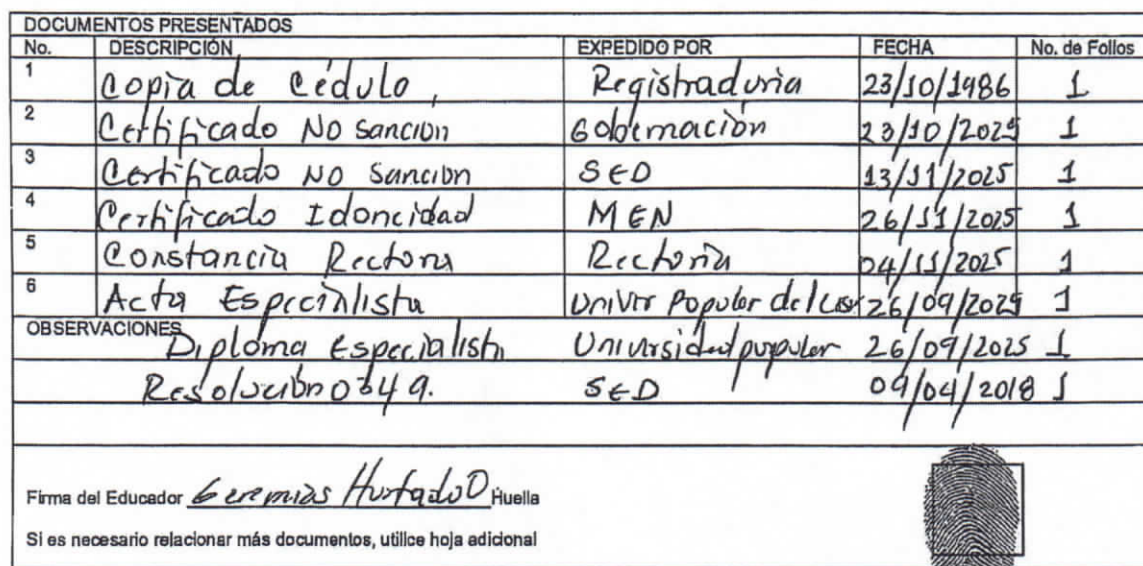 DOCUMENTOS PRESENTADOS
No. DESCRIPCIÓN EXPEDIDO POR FECHA No. de Folios
1 Copia de Cédulo, Registraduria 23/10/1986 1
2 Certificado NO sanción Gobernación 23/10/2025 1
3 Certificado NO sanción SED 13/11/2025 1
4 Certificado Idoneidad MEN 26/11/2025 1
5 Constancia Rectoria Rectoria 04/11/2025 1
6 Acta Especialista Univer Popular del 26/09/2025 1
OBSERVACIONES Diploma Especialista Universidad popular 26/09/2025 1
Resolución 0349. SED 09/04/2018 1
Firma del Educador Geremias Hurtado O Huella
Si es necesario relacionar más documentos, utilice hoja adicional